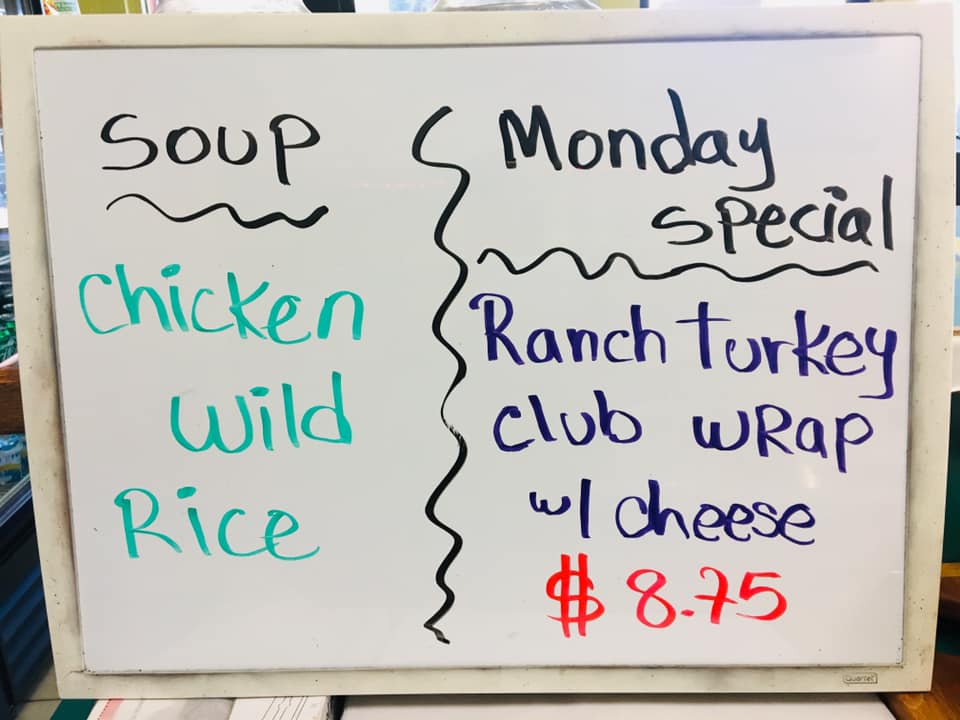 Soup
Chicken
Wild
Rice
Monday
special
Ranch Turkey
club wRap
w/ cheese
$ 8.75
Quartet